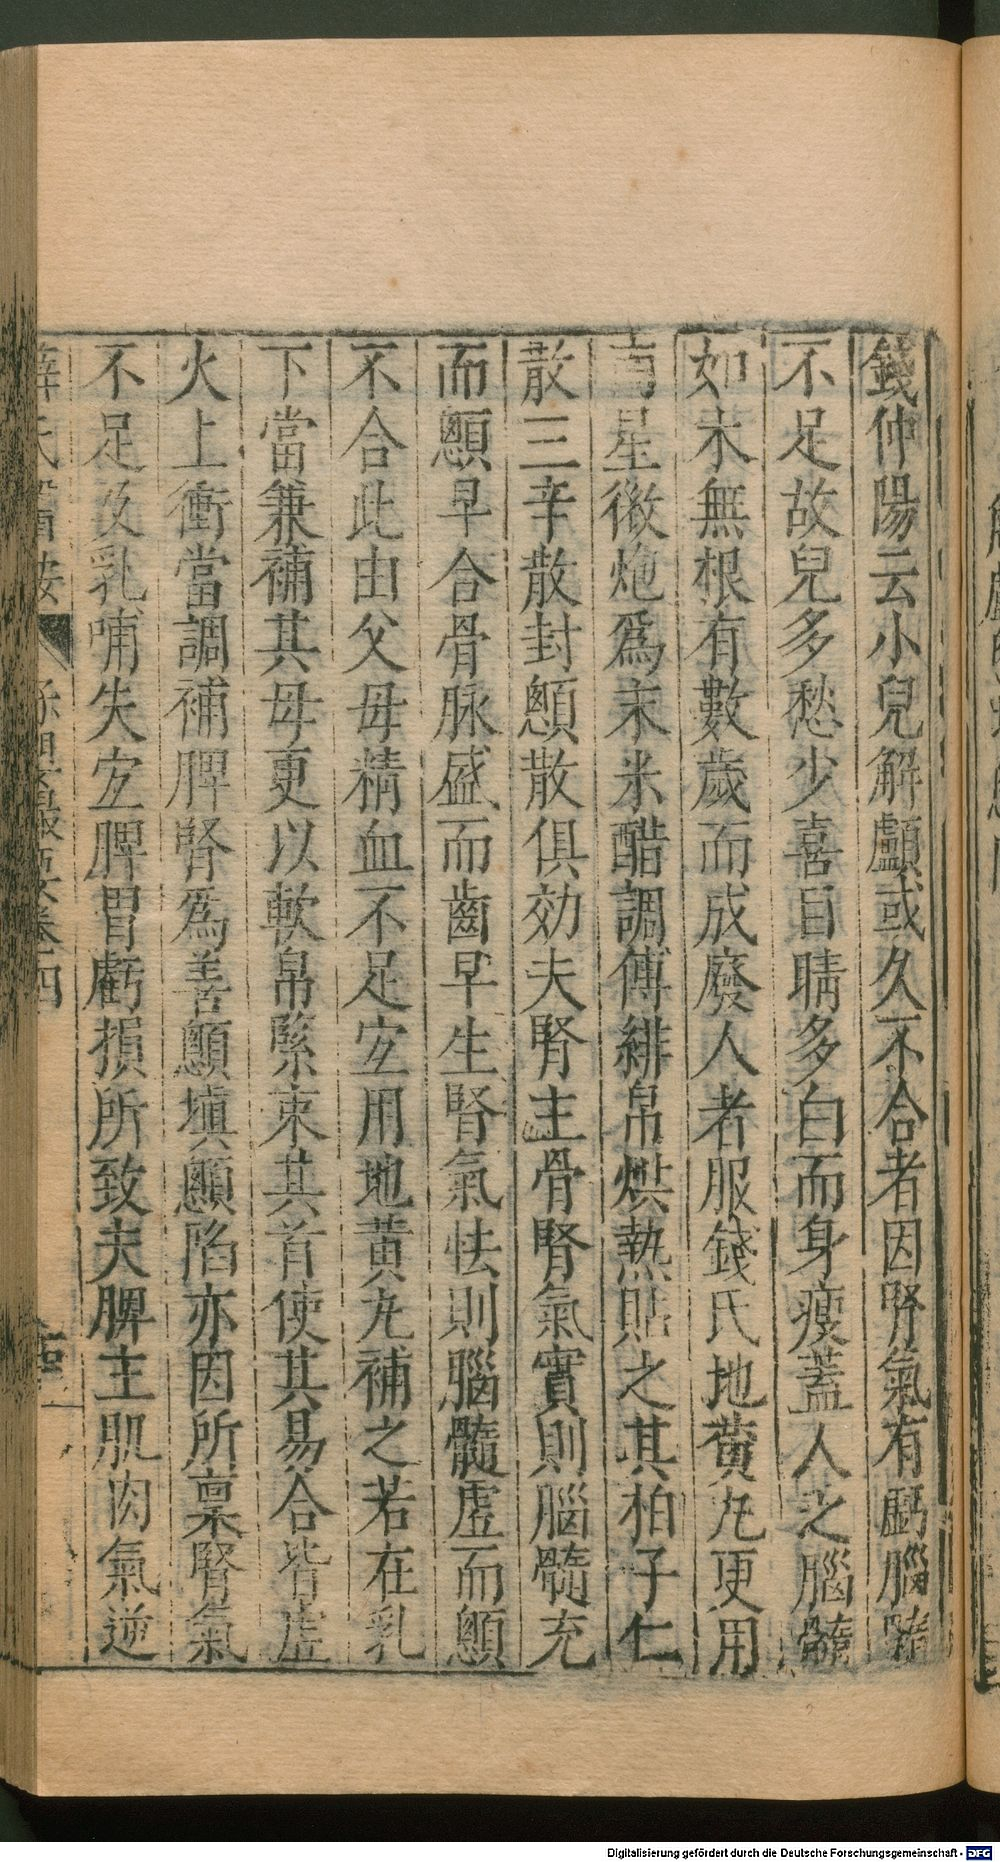 錢仲陽云小兒解顱或久不合者因腎氣有虧腦髓
不足故兒多愁少喜目睛多白而身瘦蓋人之腦髓
如木無根有數歲而成廢人者服錢氏地黃丸更用
南星微炮爲末米醋調傅緋帛烘熱貼之其柏子仁
散三辛散封顖散俱効夫腎主骨腎氣實則腦髓充
而顖早合骨脉盛而齒早生腎氣怯則腦髓虛而顖
不合此由父母精血不足宜用地黃丸補之若在乳
下當兼補其母更以軟帛緊束其首使其易合皆虛
火上衝當調補脾腎爲善顖塡顖陷亦因所稟腎氣
不足及乳哺失宜脾胃虧損所致夫脾主肌肉氣逆
薛氏醫按 卷四
Digitalisierung gefördert durch die Deutsche Forschungsgemeinschaft - DFG